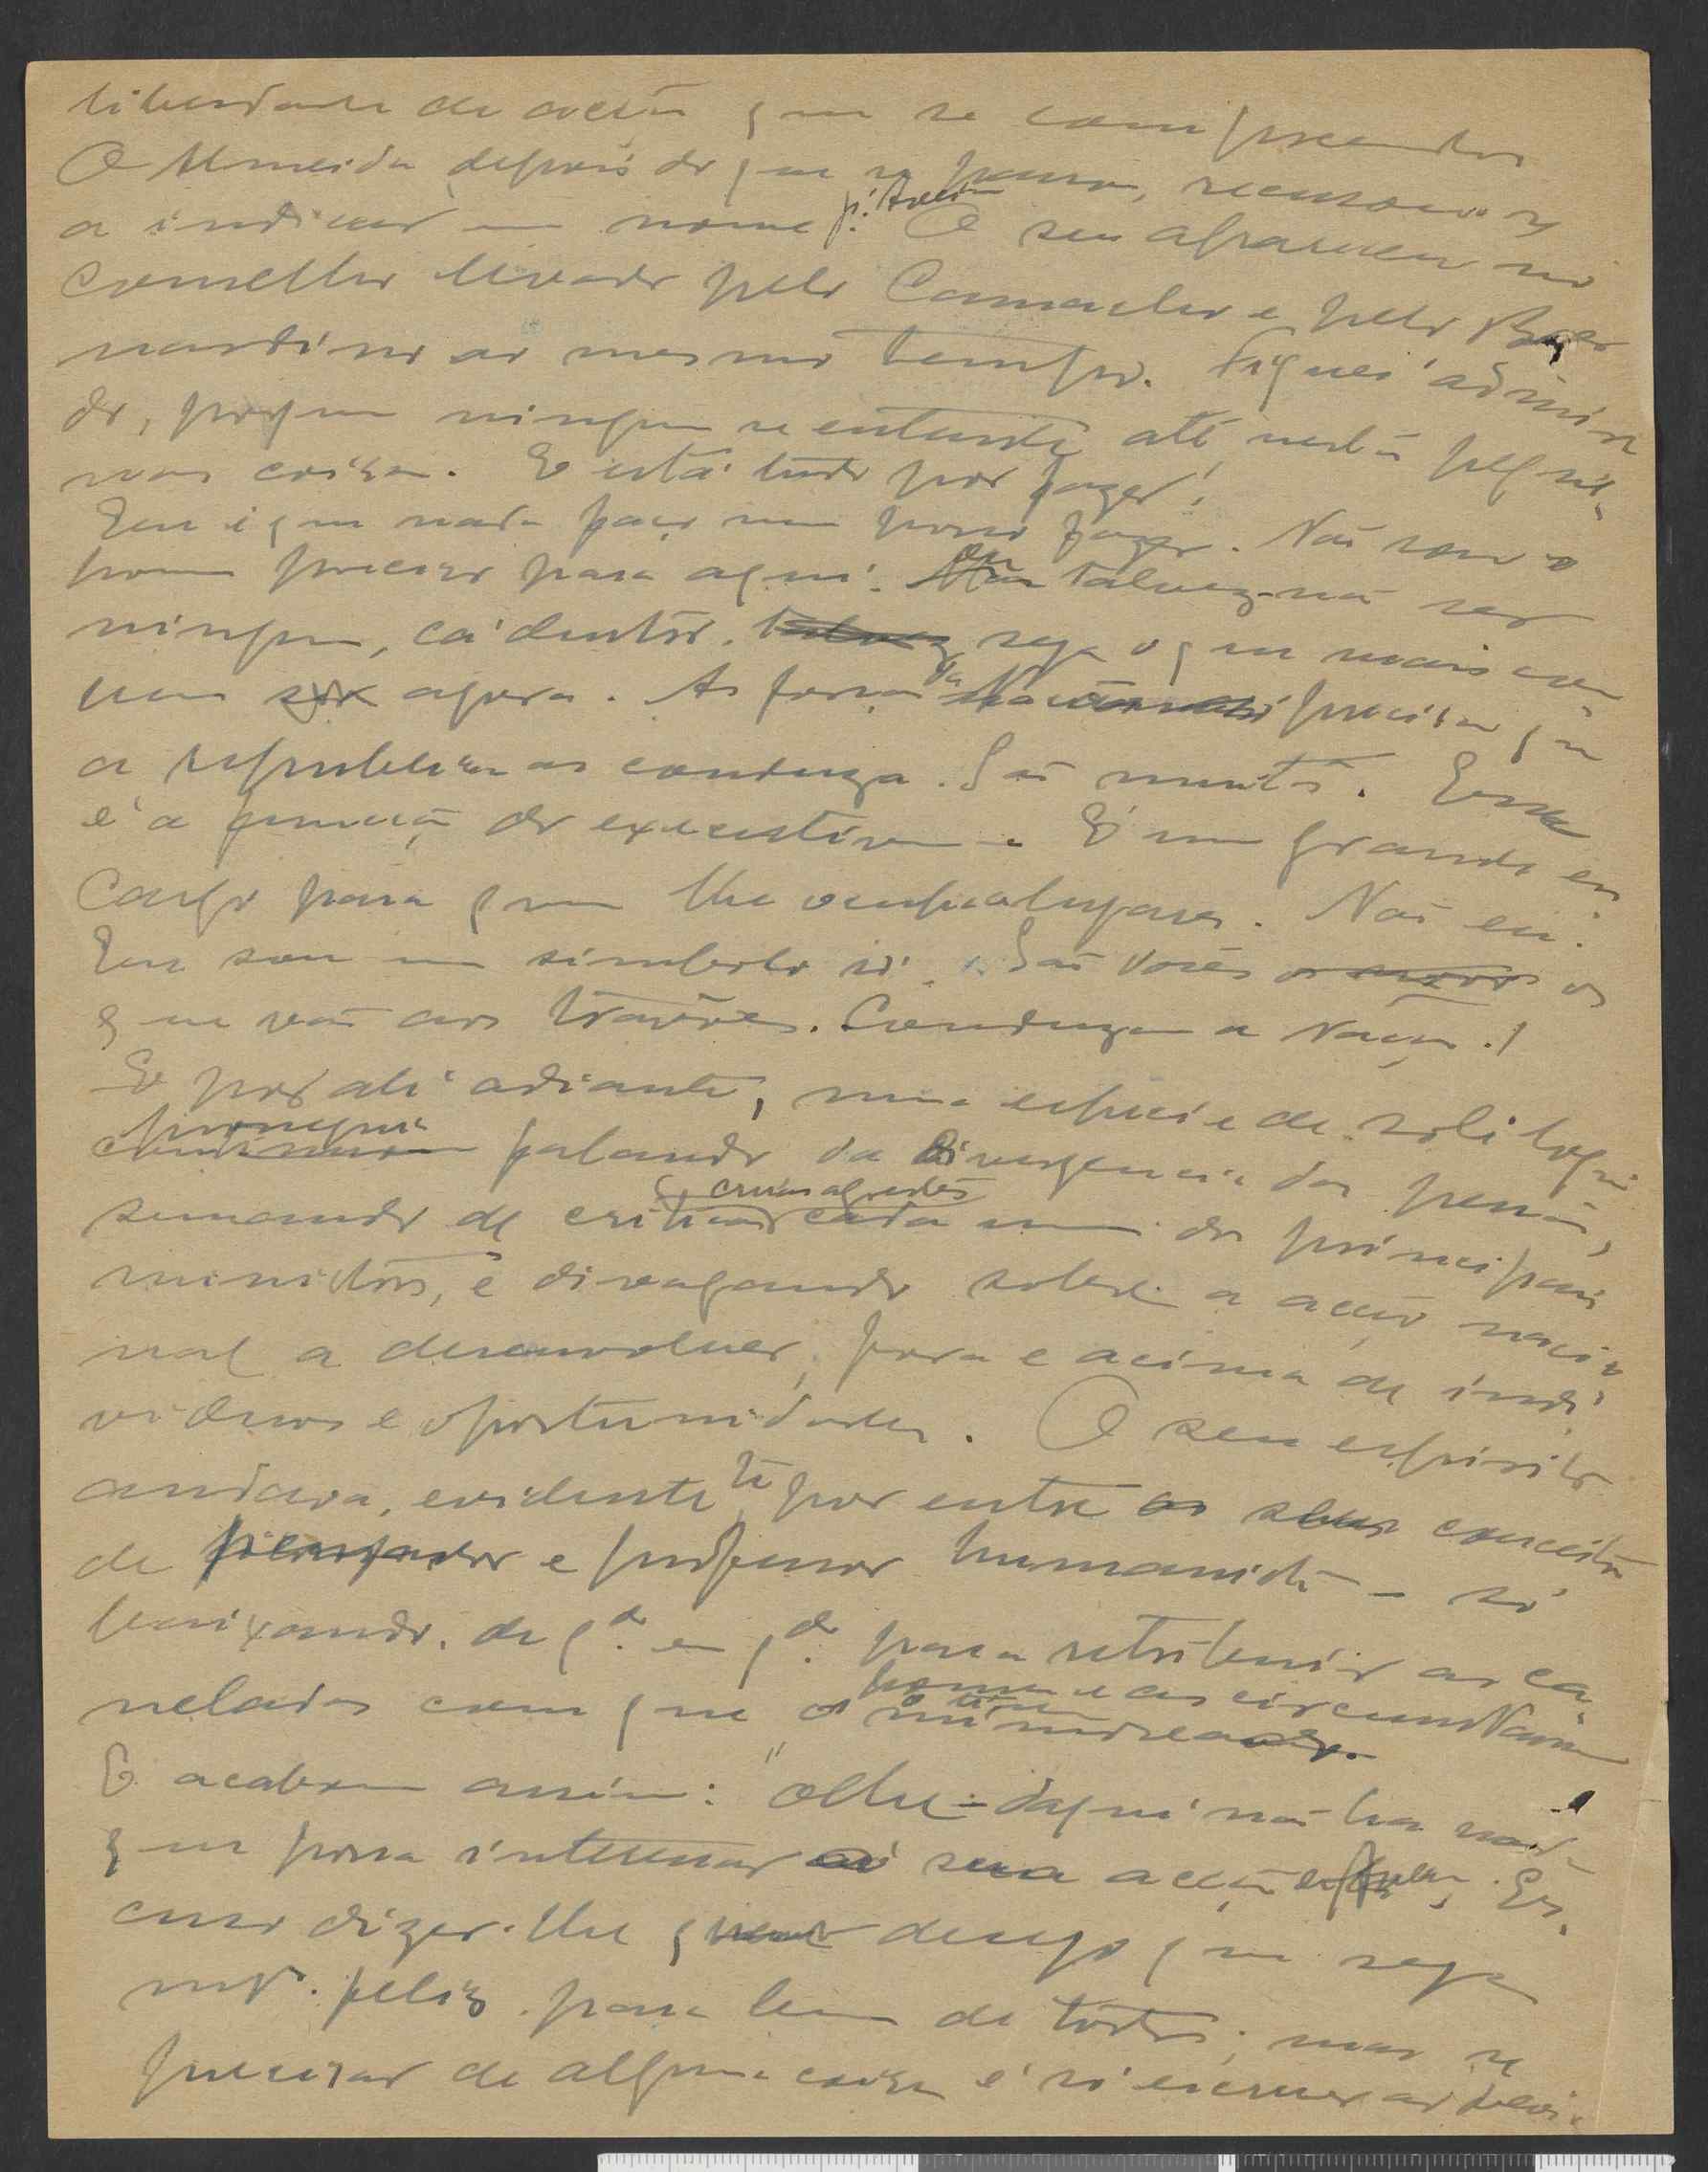 liberdade de acção que se comprehendia
O Almeida depois do que se passou, recusou-se
a indicar um nome p.ª Aveiro. O seu appareceu no
Conselho levado pelo Camacho e pelo Ber
nardino ao mesmo tempo. Fiquei admira
do, porque ninguem se entende, até nestas peque
nas coisas. E está tudo por fazer!
Eu é que nada faço nem posso fazer. Não sou o
homem preciso para aqui. Ou talvez não seja
ninguem, cá dentro. seja o que mais con
vem agora. As forças da Nação precisam que
a republica as conduza. São muitas. Essa
é a funcção do executivo. É um grande en
cargo para quem lhe occupa logares. Não eu.
Eu sou um simbolo só. São Vocês os
que vão aos travões. Conduzam a Nação!
E por ali adiante, numa especie de soliloquio
proseguiu falando da divergencia das pessoas,
criticando cada um dos principais
ministros, e divagando sobre a acção nacio
nal a desenvolver, fora e acima de indi
viduos e oportunidades. O seu espirito
andava, evidente.te por entre os seus conceitos
de pensador e professor humanista - só
baixando, de q.do em q.do para retribuir as ca
neladas com que os homens e as circunstancias
o
E acabou assim: "Olhe - daqui não ha nada
que possa interessar a sua acção. Es
cuso dizer-lhe que desejo que seja
mt.º feliz para bem de todos; mas se
precisar de alguma coisa é só escrever ao